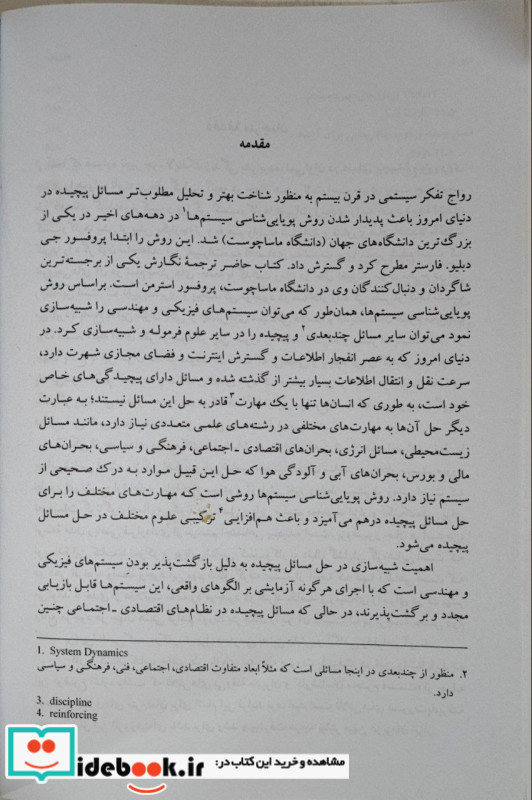 مقدمه
رواج تفکر سیستمی در قرن بیستم به منظور شناخت بهتر و تحلیل مطلوب‌تر مسائل پیچیده در
دنیای امروز باعث پدیدار شدن روش پویایی‌شناسی سیستم‌ها۱ در دهه‌های اخیر در یکی از
بزرگ‌ترین دانشگاه‌های جهان (دانشگاه ماساچوست) شد. این روش را ابتدا پروفسور جی
دبلیو. فارستر مطرح کرد و گسترش داد. کتاب حاضر ترجمۀ نگارش یکی از برجسته‌ترین
شاگردان و دنبال‌کنندگان وی در دانشگاه ماساچوست، پروفسور استرمن است. براساس روش
پویایی‌شناسی سیستم‌ها، همان‌طور که می‌توان سیستم‌های فیزیکی و مهندسی را شبیه‌سازی
نمود می‌توان سایر مسائل چندبعدی۲ و پیچیده را در سایر علوم فرموله و شبیه‌سازی کرد. در
دنیای امروز که به عصر انفجار اطلاعات و گسترش اینترنت و فضای مجازی شهرت دارد،
سرعت نقل و انتقال اطلاعات بسیار بیشتر از گذشته شده و مسائل دارای پیچیدگی‌های خاص
خود است، به طوری که انسان‌ها تنها با یک مهارت۳ قادر به حل این مسائل نیستند؛ به عبارت
دیگر حل آن‌ها به مهارت‌های مختلفی در رشته‌های علمی متعددی نیاز دارد، مانند مسائل
زیست‌محیطی، مسائل انرژی، بحران‌های اقتصادی ـ اجتماعی، فرهنگی و سیاسی، بحران‌های
مالی و بورس، بحران‌های آبی و آلودگی هوا که حل این قبیل موارد به درک صحیحی از
سیستم نیاز دارد. روش پویایی‌شناسی سیستم‌ها روشی است که مهارت‌های مختلف را برای
حل مسائل پیچیده درهم می‌آمیزد و باعث هم‌افزایی۴ ترکیبی علوم مختلف در حل مسائل
پیچیده می‌شود.
اهمیت شبیه‌سازی در حل مسائل پیچیده به دلیل بازگشت‌پذیر بودن سیستم‌های فیزیکی
و مهندسی است که با اجرای هرگونه آزمایشی بر الگوهای واقعی، این سیستم‌ها قابل بازیابی
مجدد و برگشت‌پذیرند، در حالی که مسائل پیچیده در نظام‌های اقتصادی ـ اجتماعی چنین
1. System Dynamics
۲. منظور از چندبعدی در اینجا مسائلی است که مثلاً ابعاد متفاوت اقتصادی، اجتماعی، فنی، فرهنگی و سیاسی
دارد.
3. discipline
4. reinforcing
مشاهده و خرید این کتاب در:
idebook.ir